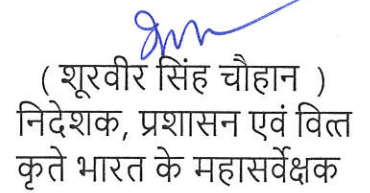 ( शूरवीर सिंह चौहान )
निदेशक, प्रशासन एवं वित्त
कृते भारत के महासर्वेक्षक